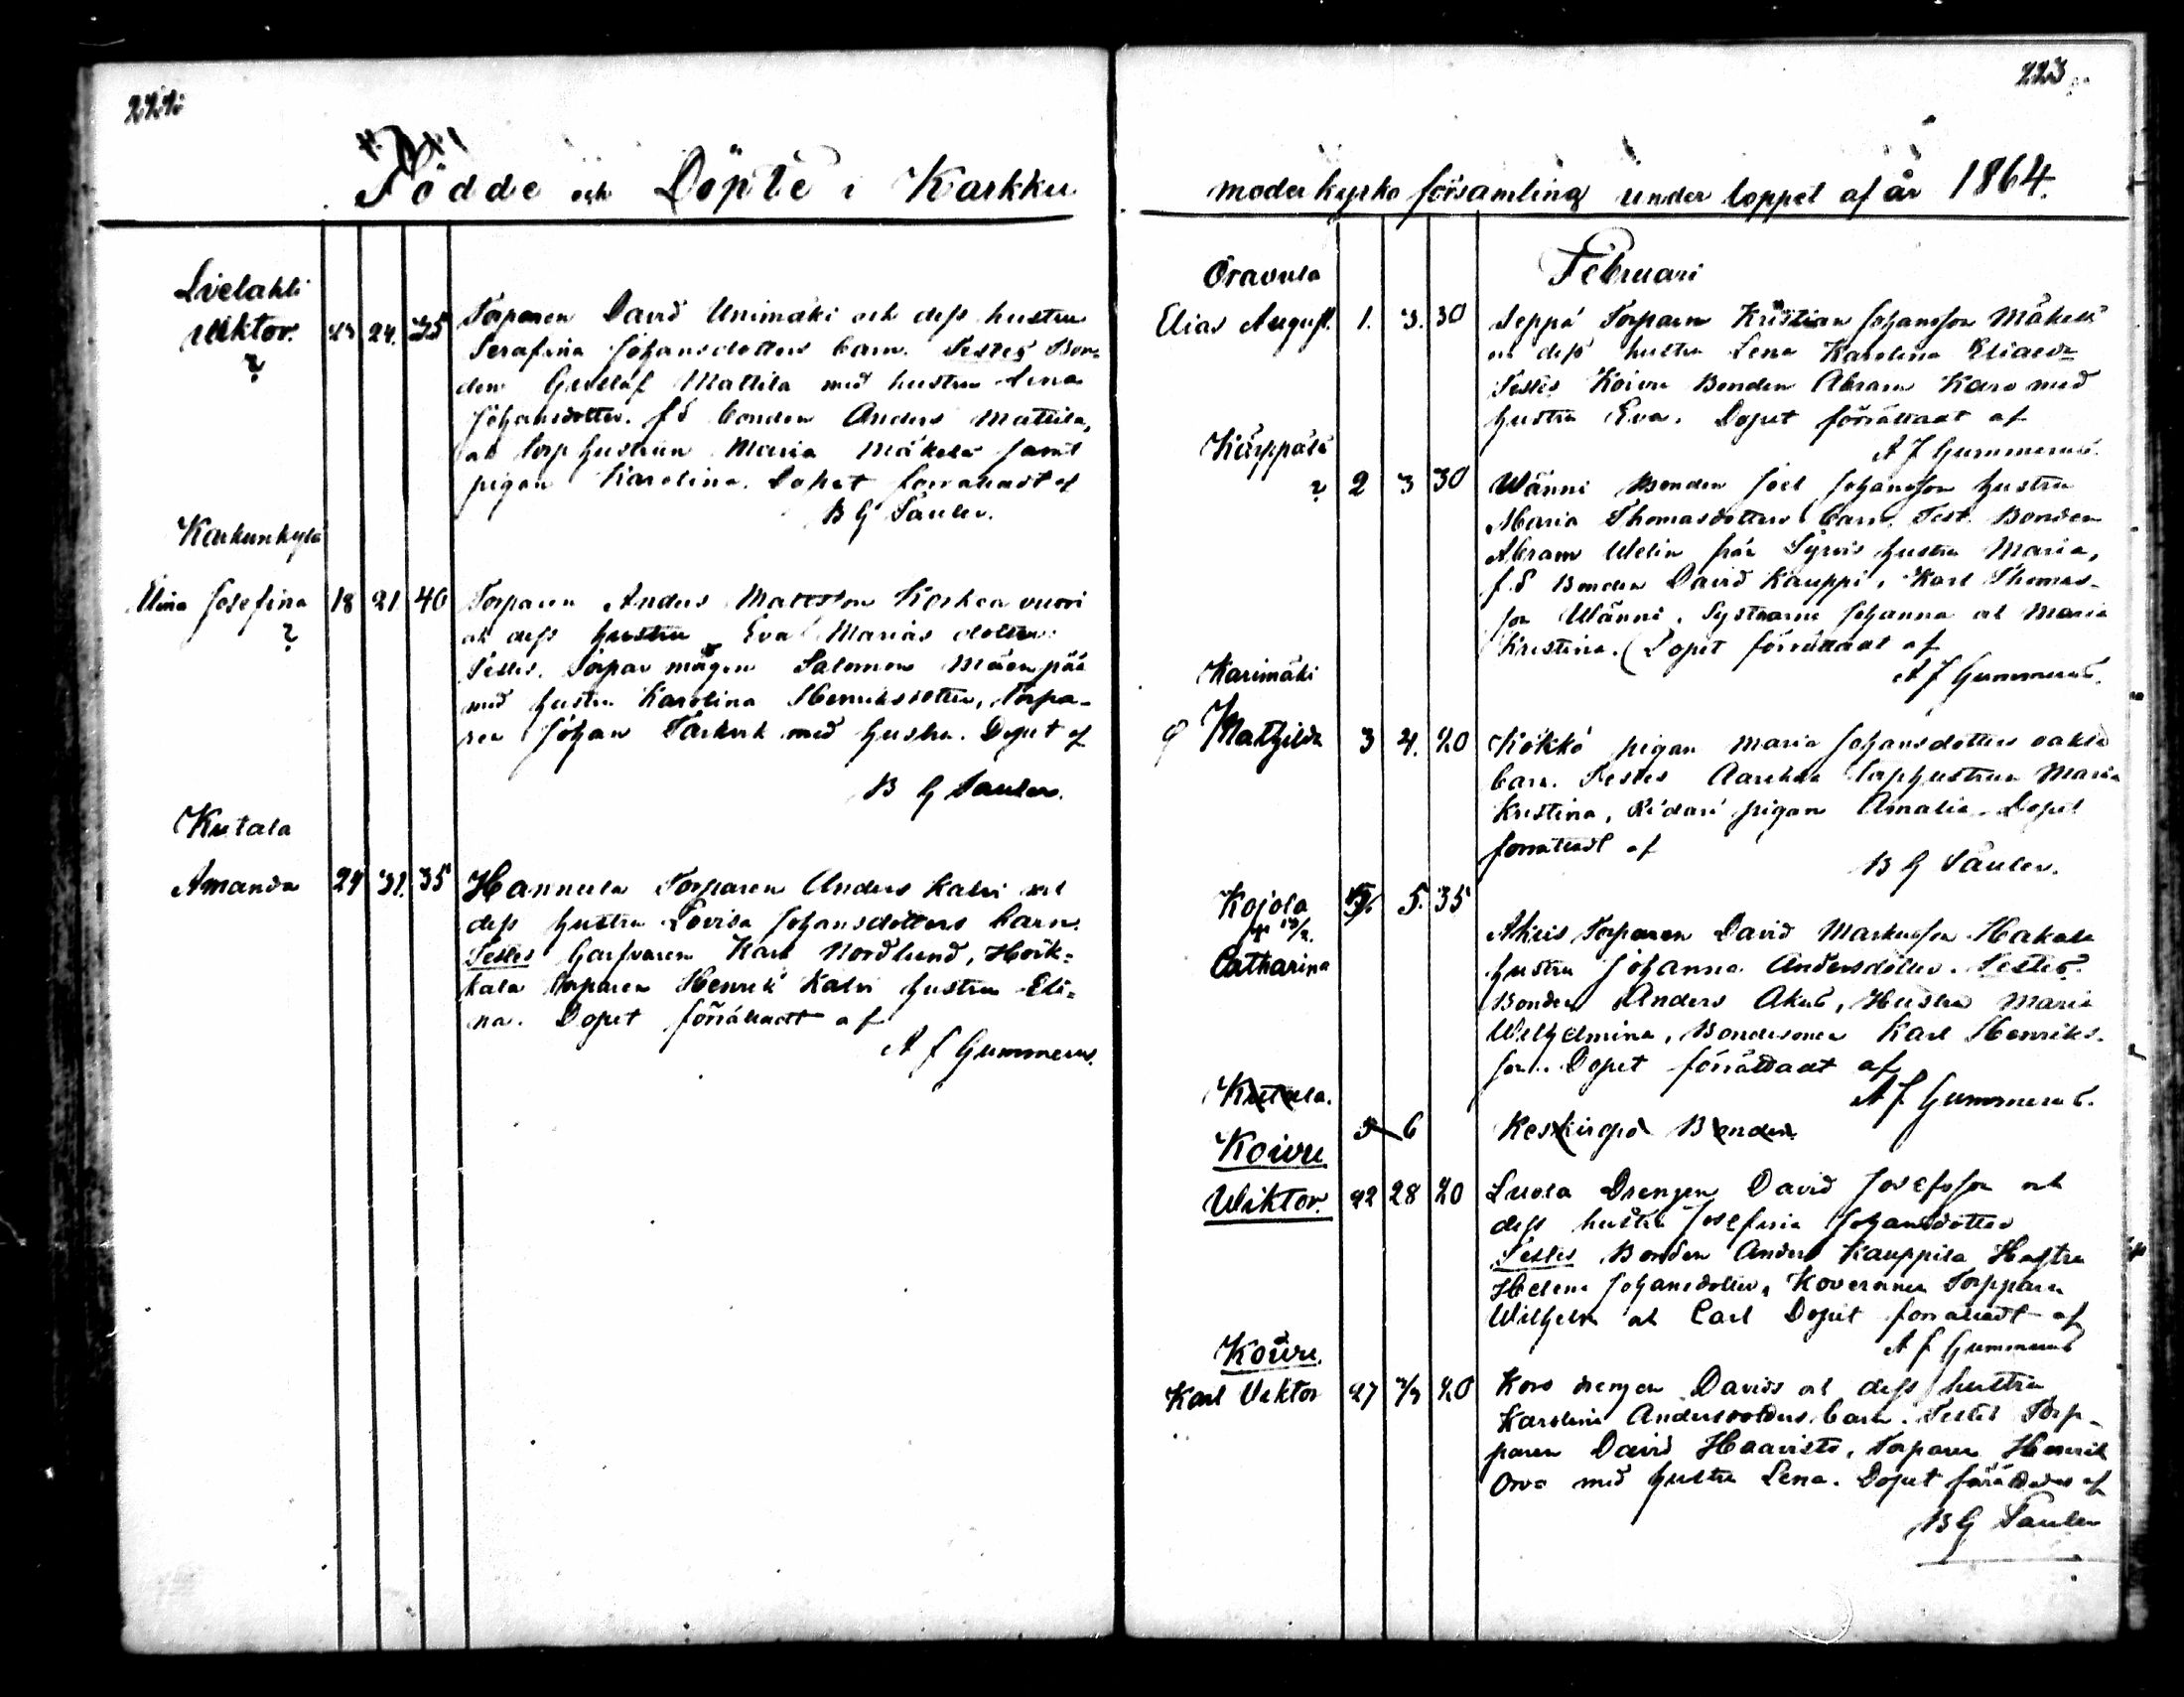 222
223
Födde och Döpte i Karkku
moderkyrko församling under loppet af år 1864.
Livelahti
Viktor. 23 24. 35 Torparen David Unimäki och dess hustru
Serafina Johansdotters barn. Testes Bon-
den Gustaf Mattila med hustru Lena
Johansdotter. f. d bonden Anders Mattila,
torphustrun Maria Mäkelä samt
pigan Karolina. Dopet förrättadt af
B G Tauler.
Karkunkylä
Josefina 18 21 40 Torparen Anders Mattsson Korkea vuori
och dess hustru Eva dotter
Testes. Torpar mågen Salomon Mäenpää
med hustru Karolina Henriksdotter, Torpa-
ren Johan med hustru. Dopet af
B G Tauler.
Kutala
Amanda 29 31. 35 Hannula Torparen Anders Kalvi och
dess hustru Lovisa Johansdotters barn.
Testes Garfvaren Karl Nordlund, Hörk-
kala torparen Henrik Kalvi hustru Eli-
na. Dopet förrättadt af
A f Gummerus.
Februari
Oravula
Elias August. 1. 3. 30 Seppä Torparen Kristian Johansson Mäkelä
och dess hustru Lena Karolina Eliasd-
Testes Koivu Bonden Abram Karo med
hustru Eva. Dopet förrättadt af
A F Gummerus.
Kärppälä
? 2 3 30 Wänni Bonden Joel Johansson hustru
Maria Thomasdotters barn. Test. Bonden
Abram Welin från hustru Maria,
f. d Bonden David Kauppi, Karl Thomas-
son Wänni, Systrarne Johanna och Maria
Kristina. Dopet förrättadt af
A F Gummerus.
Karimäki
Mathilda 3 4. 20 Kökkö pigan Maria Johansdotters oäkta
barn. Testes torphustrun Maria
Kristina, pigan Amalia. Dopet
förrättadt af
B G Tauler.
Kojola 5. 35
Catharina
Akus Torparen David Markusson Hakala
hustru Johanna Andersdotter. Testes.
Bonden Anders Akus, Hustru Maria
Wilhelmina, Bondesonen Karl Henriks-
son. Dopet förrättadt af
A F Gummerus.
Kutala.
5 6 Bonden
Koivu
Wiktor. 22 28 20 Luola Drengen David Josefsson och
dess hustru Josefina Johansdotter
Testes Bonden Anders Kauppila Hustru
Helena Johansdotter, Torpparen
Wilhelm och Carl Dopet förrättadt af
A f Gummerus
Koivu.
Karl Viktor 27 20 Koro drengen Davids och dess hustru
Karolina Andersdotters barn. Testes Torp-
paren David Haavisto, Torparen Henrik
Orva med hustru Lena. Dopet förrättades af
B G Tauler